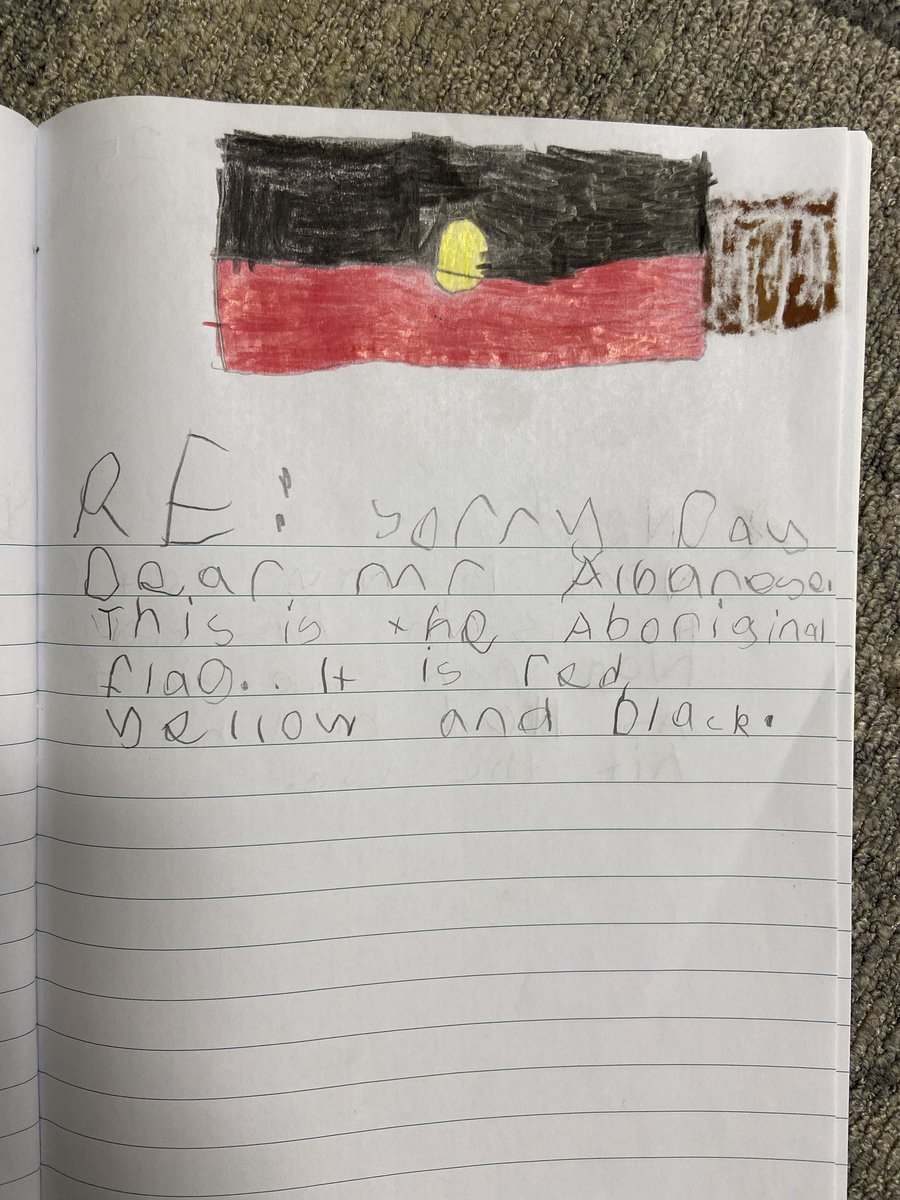 RE: sorry Day
Dear mr Albanese.
This is the Aboriginal
flag.. It is red,
yellow and black.